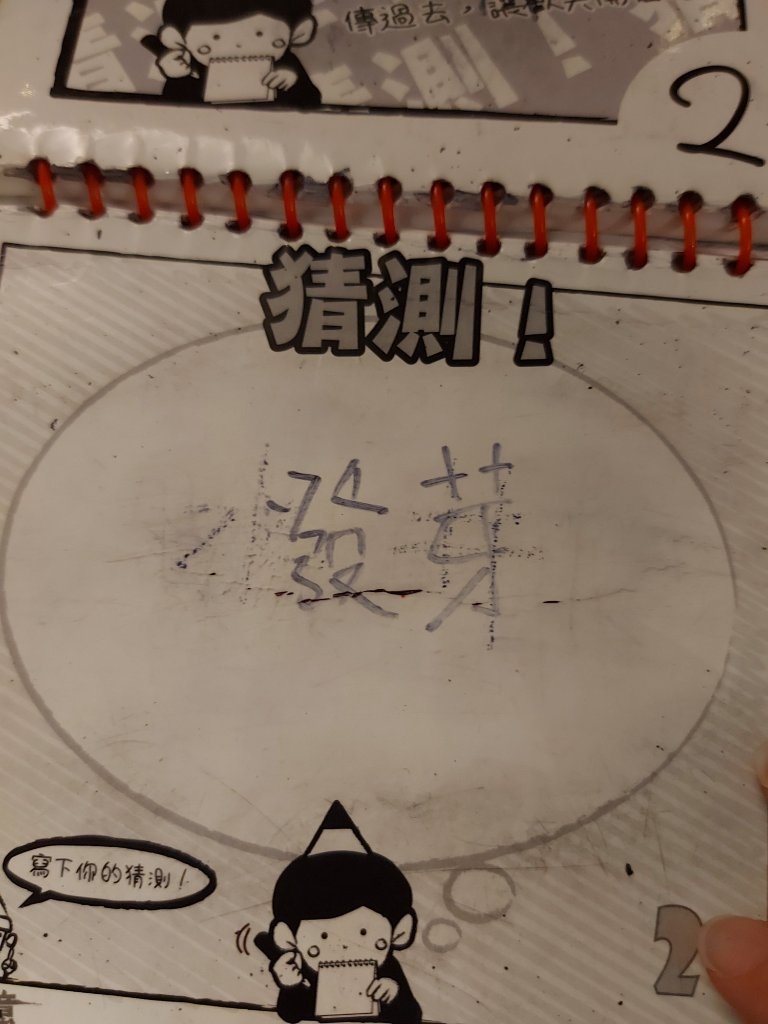 傳過去，讓
猜測！
2
猜測！
發芽
寫下你的猜測！
2